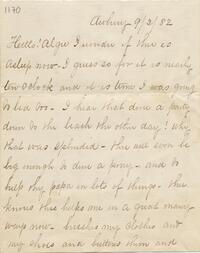 1170
Auburg 9/2/82
Hello! Algie I wonder if she is
asleep now. I guess so for it is nearly
ten o'clock and it is time I was going
to bed too. I hear that she drove a pony
down to the beach the other day! Why
that was splendid. She will soon be
big enough to drive a pony. and to
help my papa in lots of things. She
knows she helps me in a great many
ways now. brushes my clothes and
my shoes and buttons them and